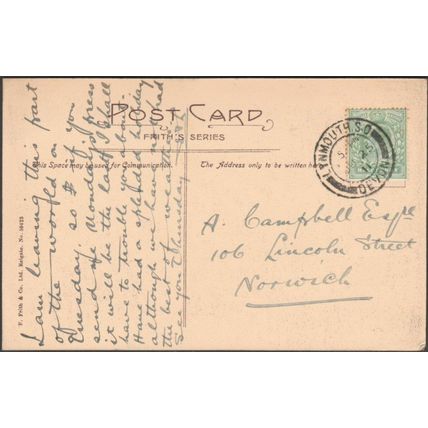 POST CARD
FRITH'S SERIES
This Space may be used for Communication.
The Address only to be written here
F. Frith & Co., Ltd., Reigate. No.
I am leaving this part
of the world on
Tuesday. so if you
send me Monday's press
it will be the last I shall
have to trouble you about.
Have had a splendid holiday
although we have not had
the best of weather.
See you Thursday
LYNMOUTH S.O
DEVON
A. Campbell Esqre
106 Lincoln Street
Norwich